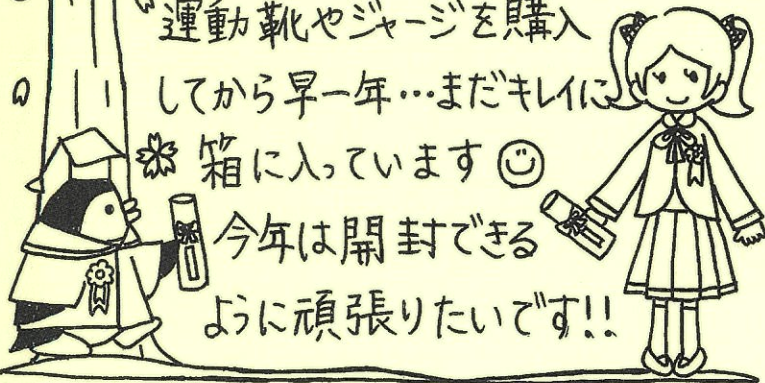 運動靴やジャージを購入
してから早一年…まだキレイに
箱に入っています
今年は開封できる
ように頑張りたいです!!